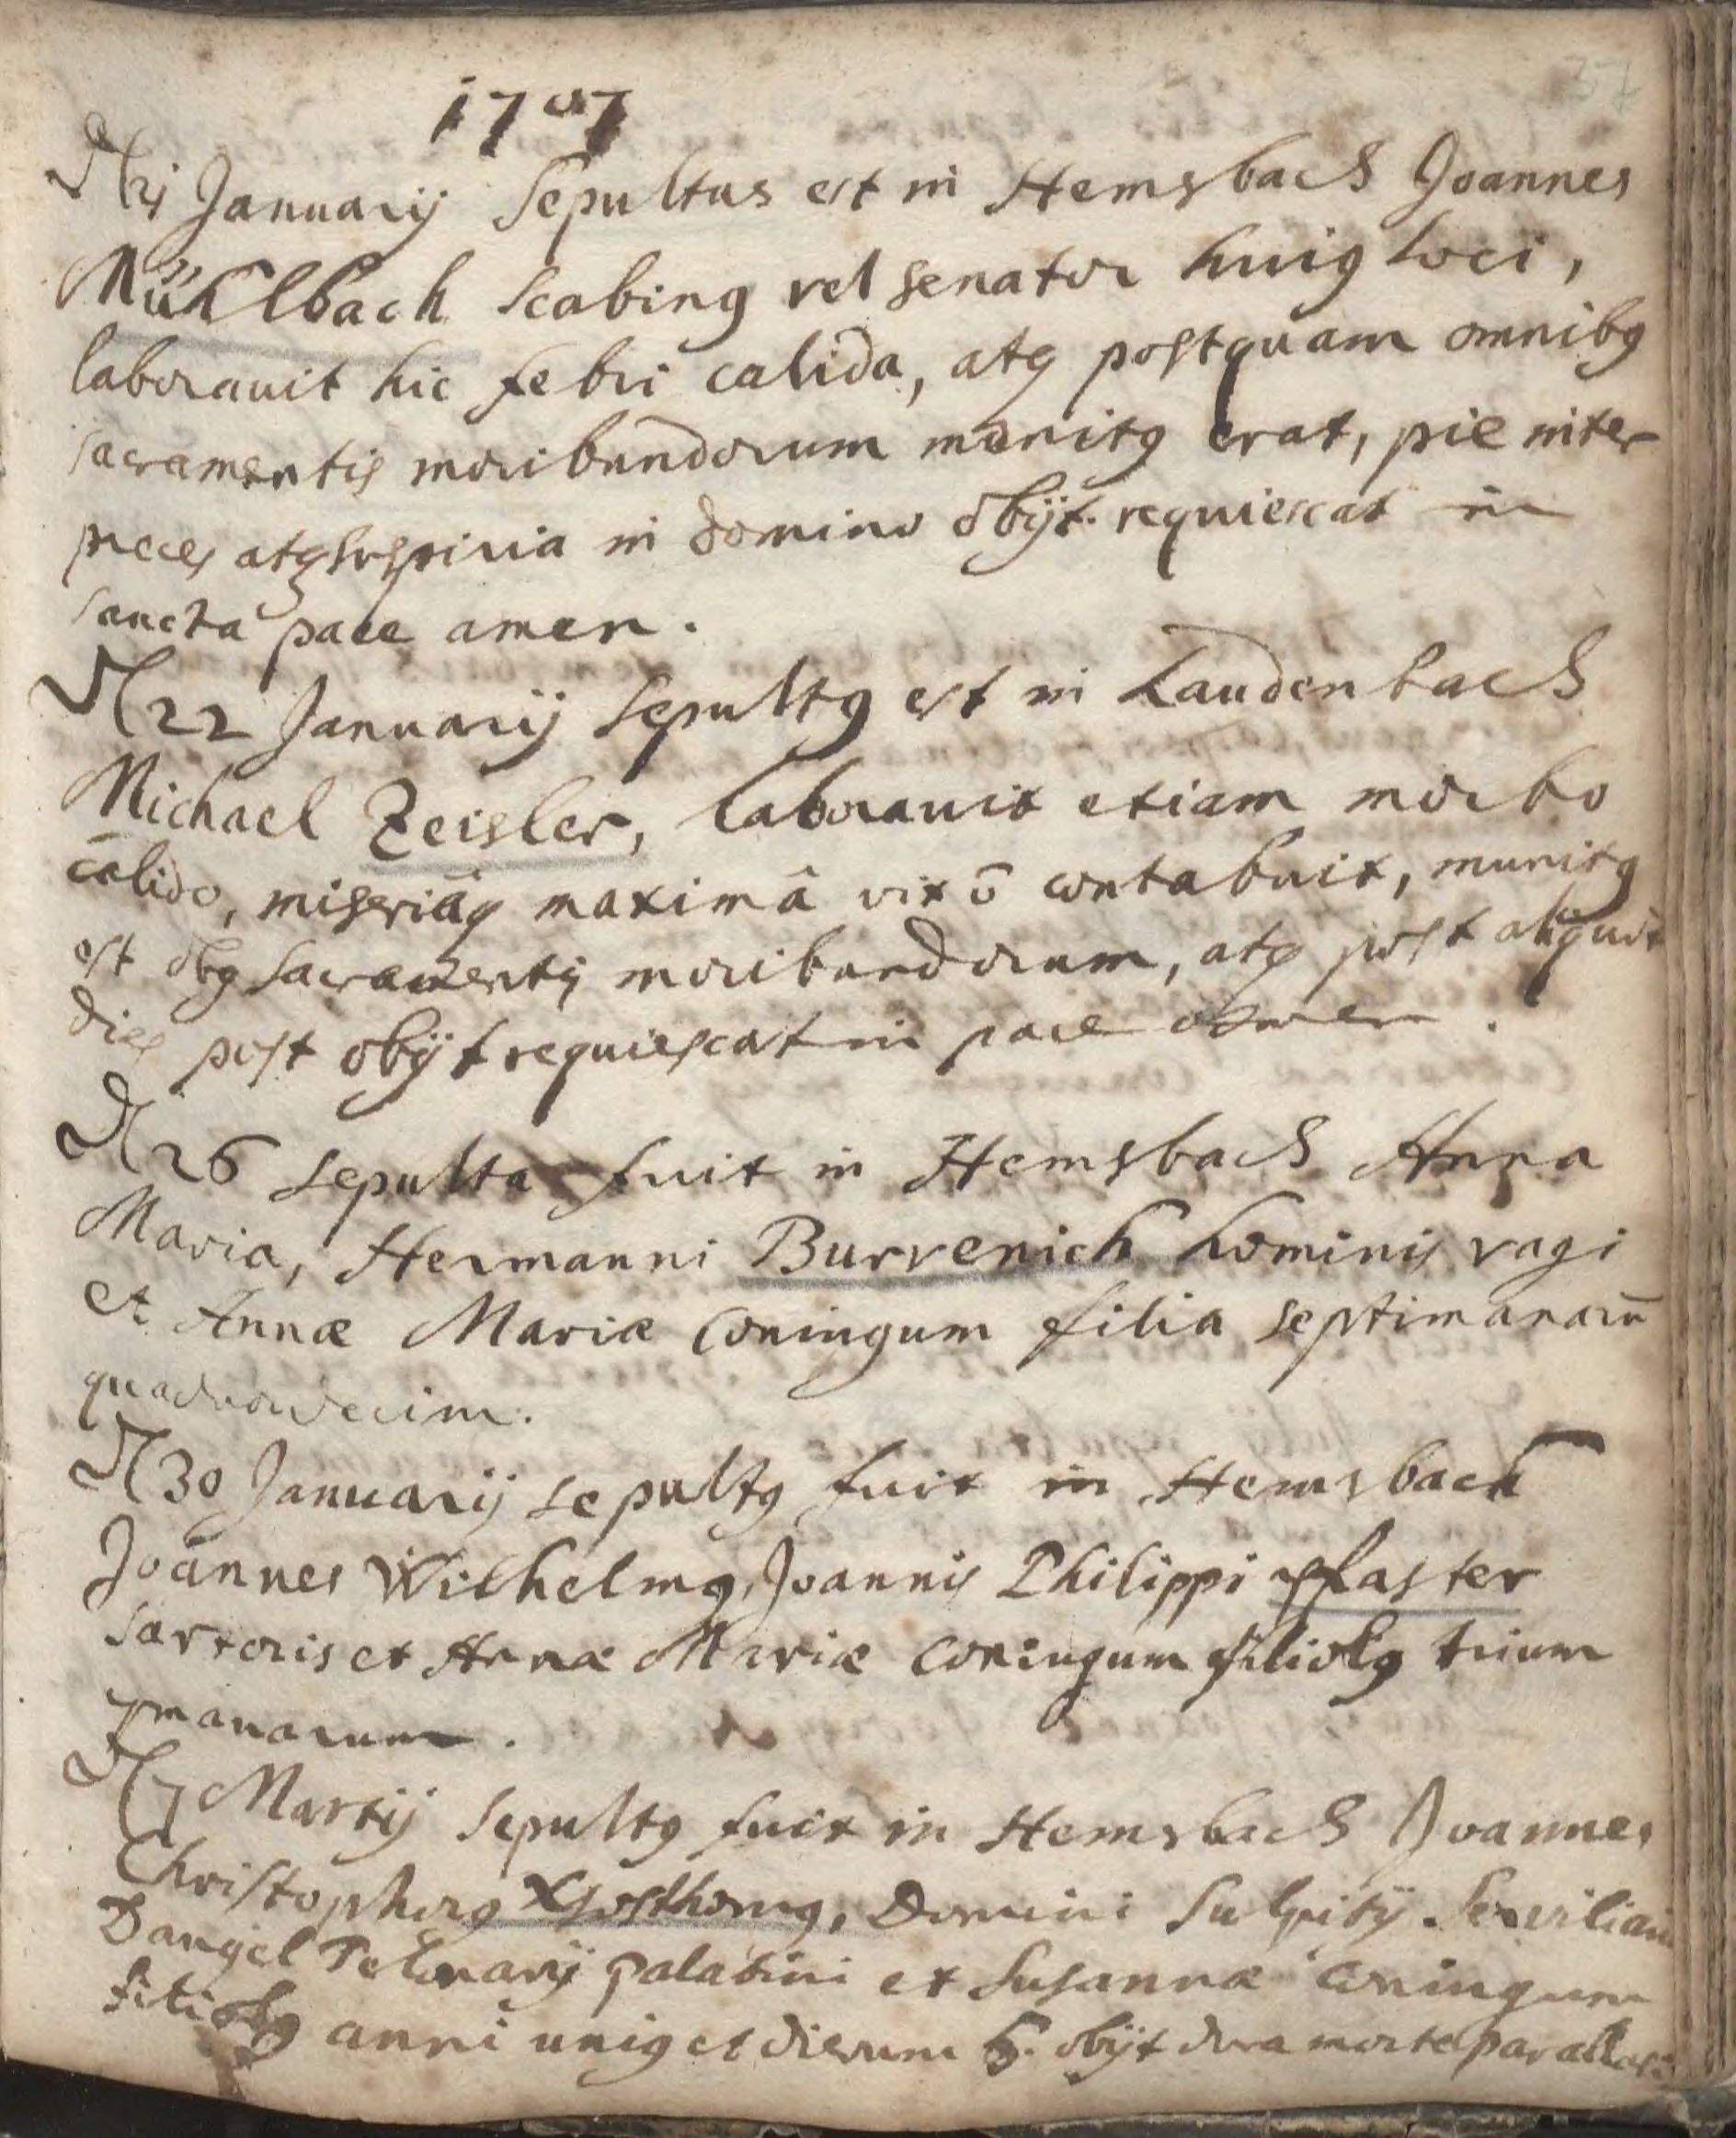 37
1707
21 Januarij Sepultus est in Hemsbach Joannes
Mühlbach Scabing vel senator huig loci,
laborauit hic febri calida, atq postquam omnibg
sacramentis moribundorum munitg erat, pie inter
preces atq suspiria in domino obijt. requiescat in
sancta pace amen.
22 Januarij Sepultg est in Laudenbach
Michael Zeisler, laborauit etiam morbo
calido, miseriâq maximâ contabuit, munitg
est obg sacramentis moribundorum, atq post aliquot
dies post obijt requiescat in pace amen.
26 Sepulta fuit in Hemsbach Anna
Maria, Hermanni Burvenich hominis vagi
et Annæ Mariæ coniugum filia septimanarū
quadrordecim.
30 Januarij sepultg fuit in Hemsbach
Joannes Wilhelmg, Joannis Philippi pflaster
sartoris et Annæ Mariæ coniugum filiolg trium
7manarum.
7 Martij Sepultg fuit in Hemsbach Joannes
Christophorg, Domini Sulpitij
Dangel Telonarij palatini et Susannæ coniugum
filiolg anni unig et dierum 5. obijt dura morte